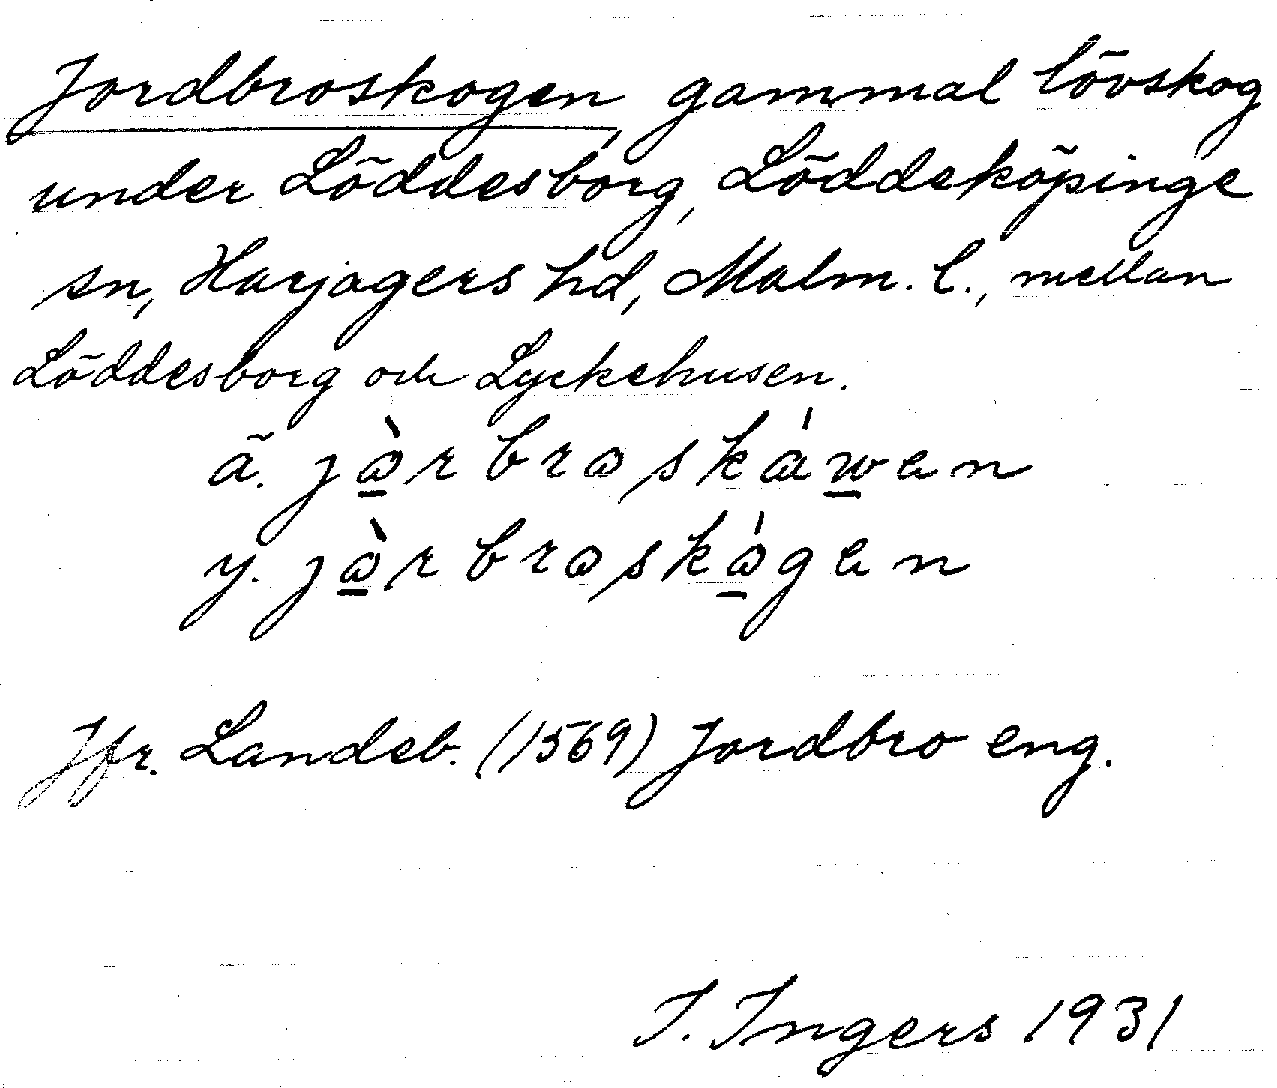 Jordbroskogen, gammal lövskog
under Löddesborg, Löddeköpinge
sn, Harjagers hd, Malm. l., mellan
Löddesborg och Lyckehusen.
ä. jɷ̀r brɷskáwen
y. jɷ̀r brɷskɷ́gen
Jfr. Landeb. (1569) Jordbro eng.
I. Ingers 1931